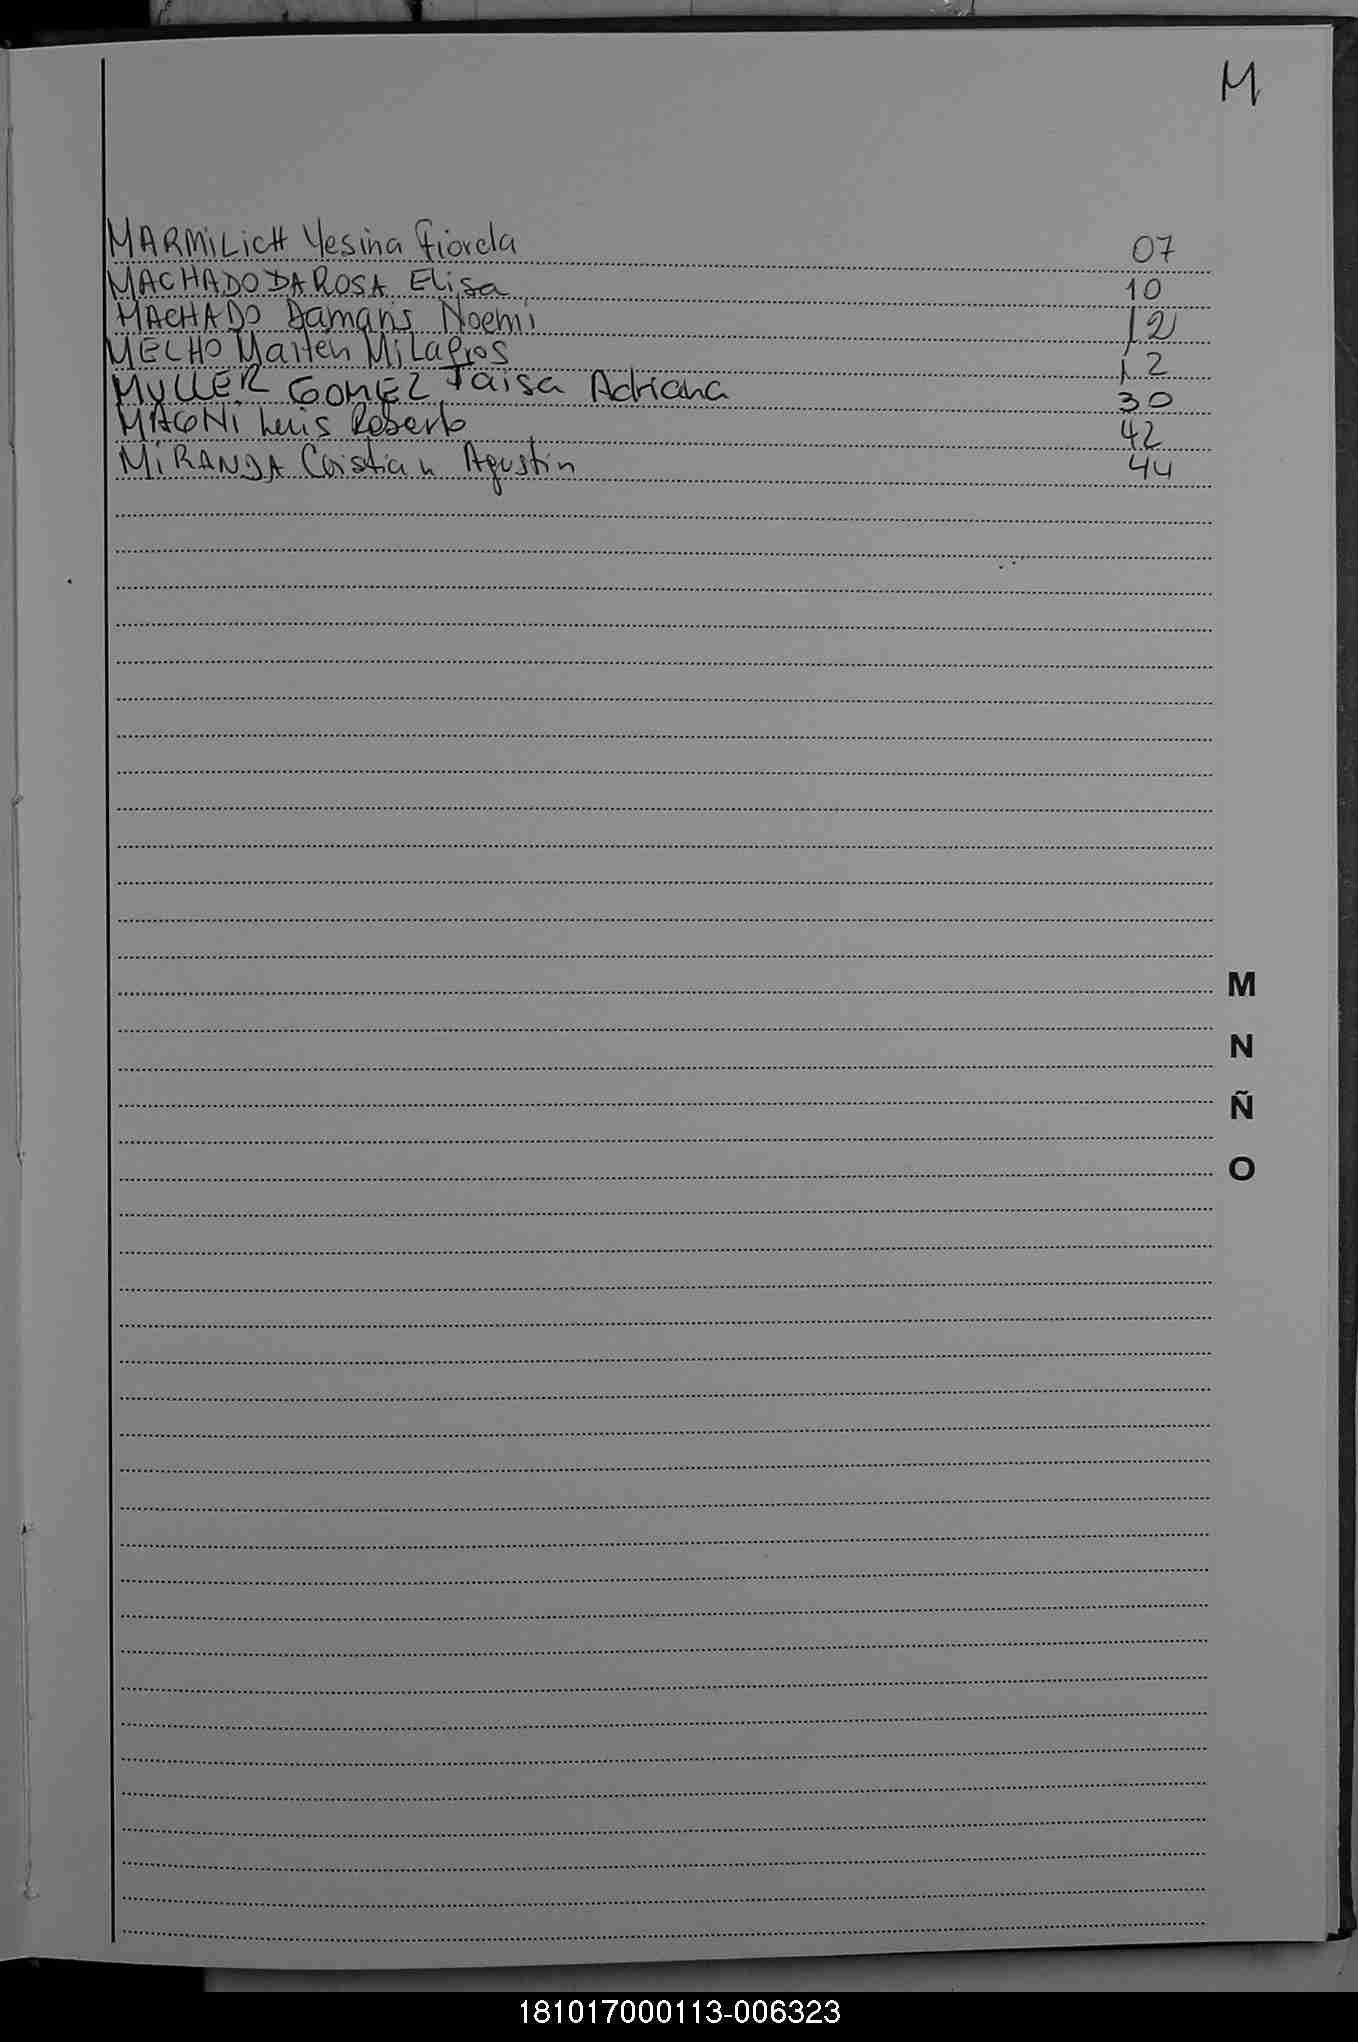 M
MARMILICH Yesina Fiorela 07
MACHADO DA ROSA Elisa 10
MACHADO Damaris Noemi 12
MELHO Maiten Milagros 12
MULLER GOMEZ Taisa Adriana 30
MAGNI Luis Roberto 42
MIRANDA Cristian Agustin 44
M
N
Ñ
O
181017000113-006323